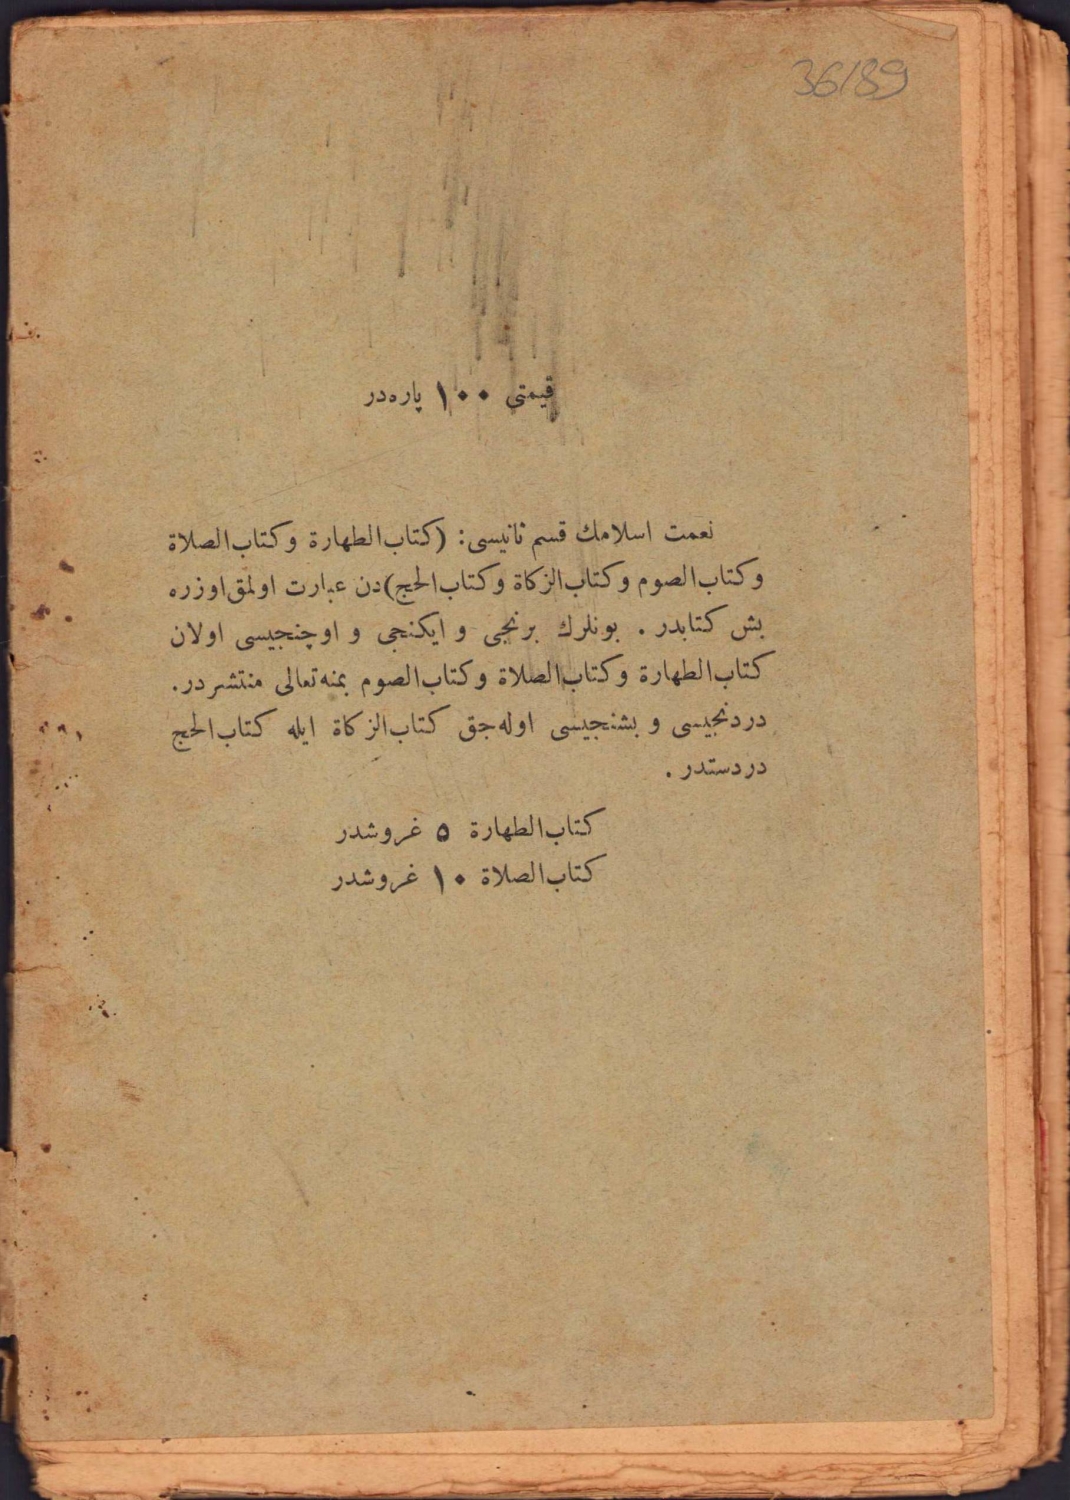 36189
قيمتی ١٠٠ پاره‌در
نعمت اسلامك قسم ثانيسی: (كتاب‌الطهارة وكتاب‌الصلاة
وكتاب‌الصوم وكتاب‌الزكاة وكتاب‌الحج)دن عبارت اولمق‌اوزره
بش كتابدر . بونلرك برنجی و ايكنجی و اوچنجيسی اولان
كتاب‌الطهارة وكتاب‌الصلاة وكتاب‌الصوم بمنه‌تعالی منتشردر.
دردنجيسی و بشنجيسی اوله‌جق كتاب‌الزكاة ايله كتاب‌الحج
دردستدر .
كتاب‌الطهارة ٥ غروشدر
كتاب‌الصلاة ١٠ غروشدر